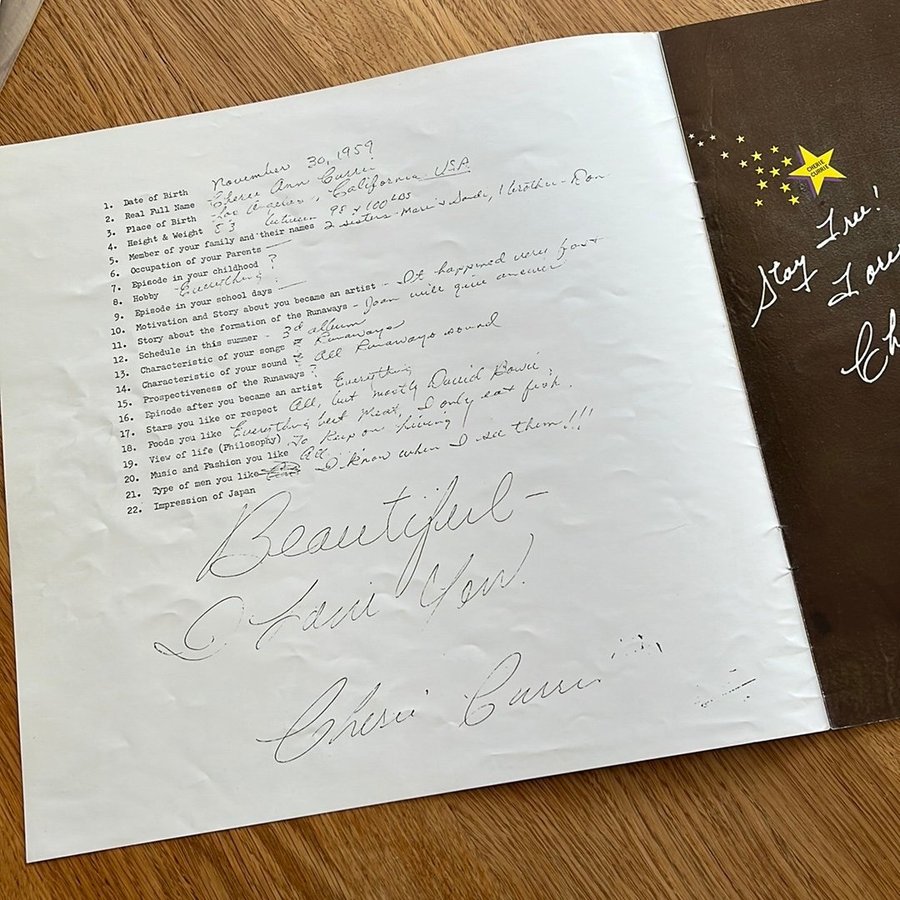 1. Date of Birth November 30, 1959
2. Real Full Name Cherie Ann Currie
3. Place of Birth Los Angeles, California USA
4. Height & Weight 5'3 between 98 & 100 lbs
5. Member of your family and their names 2 sisters - Marie & Sandi, 1 brother - Don
6. Occupation of your Parents —
7. Episode in your childhood ?
8. Hobby Everything
9. Episode in your school days —
10. Motivation and Story about you became an artist - It happened very fast
11. Story about the formation of the Runaways - Joan will give answer
12. Schedule in this summer - 3d album
13. Characteristic of your songs Runaways
14. Characteristic of your sound All Runaways sound
15. Prospectiveness of the Runaways ?
16. Episode after you became an artist Everything
17. Stars you like or respect All, but mostly David Bowie
18. Foods you like Everything but Meat, I only eat fish.
19. View of life (Philosophy) To keep on living!
20. Music and Fashion you like All
21. Type of men you like I know when I see them!!!
22. Impression of Japan
Beautiful -
I Love You.
Cherie Currie
CHERIE
CURRIE
Stay Free!
Love
Ch